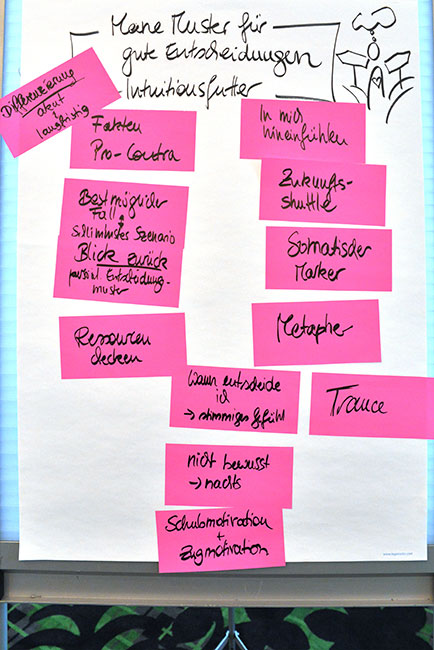 Meine Muster für
gute Entscheidungen
Intuitionsfutter
Differenzierung
akut
langfristig
Fakten
Pro-Contra
In mich
hineinfühlen
Bestmöglicher
Fall
schlimmstes Szenario
Zukunfts-
shuttle
Blick zurück
Entscheidungs-
muster
Somatischer
Marker
Ressourcen
checken
Metapher
Wann entscheide
ich
→ stimmiges Gefühl
Trance
nicht bewusst
→ nachts
Schubmotivation
+
Zugmotivation